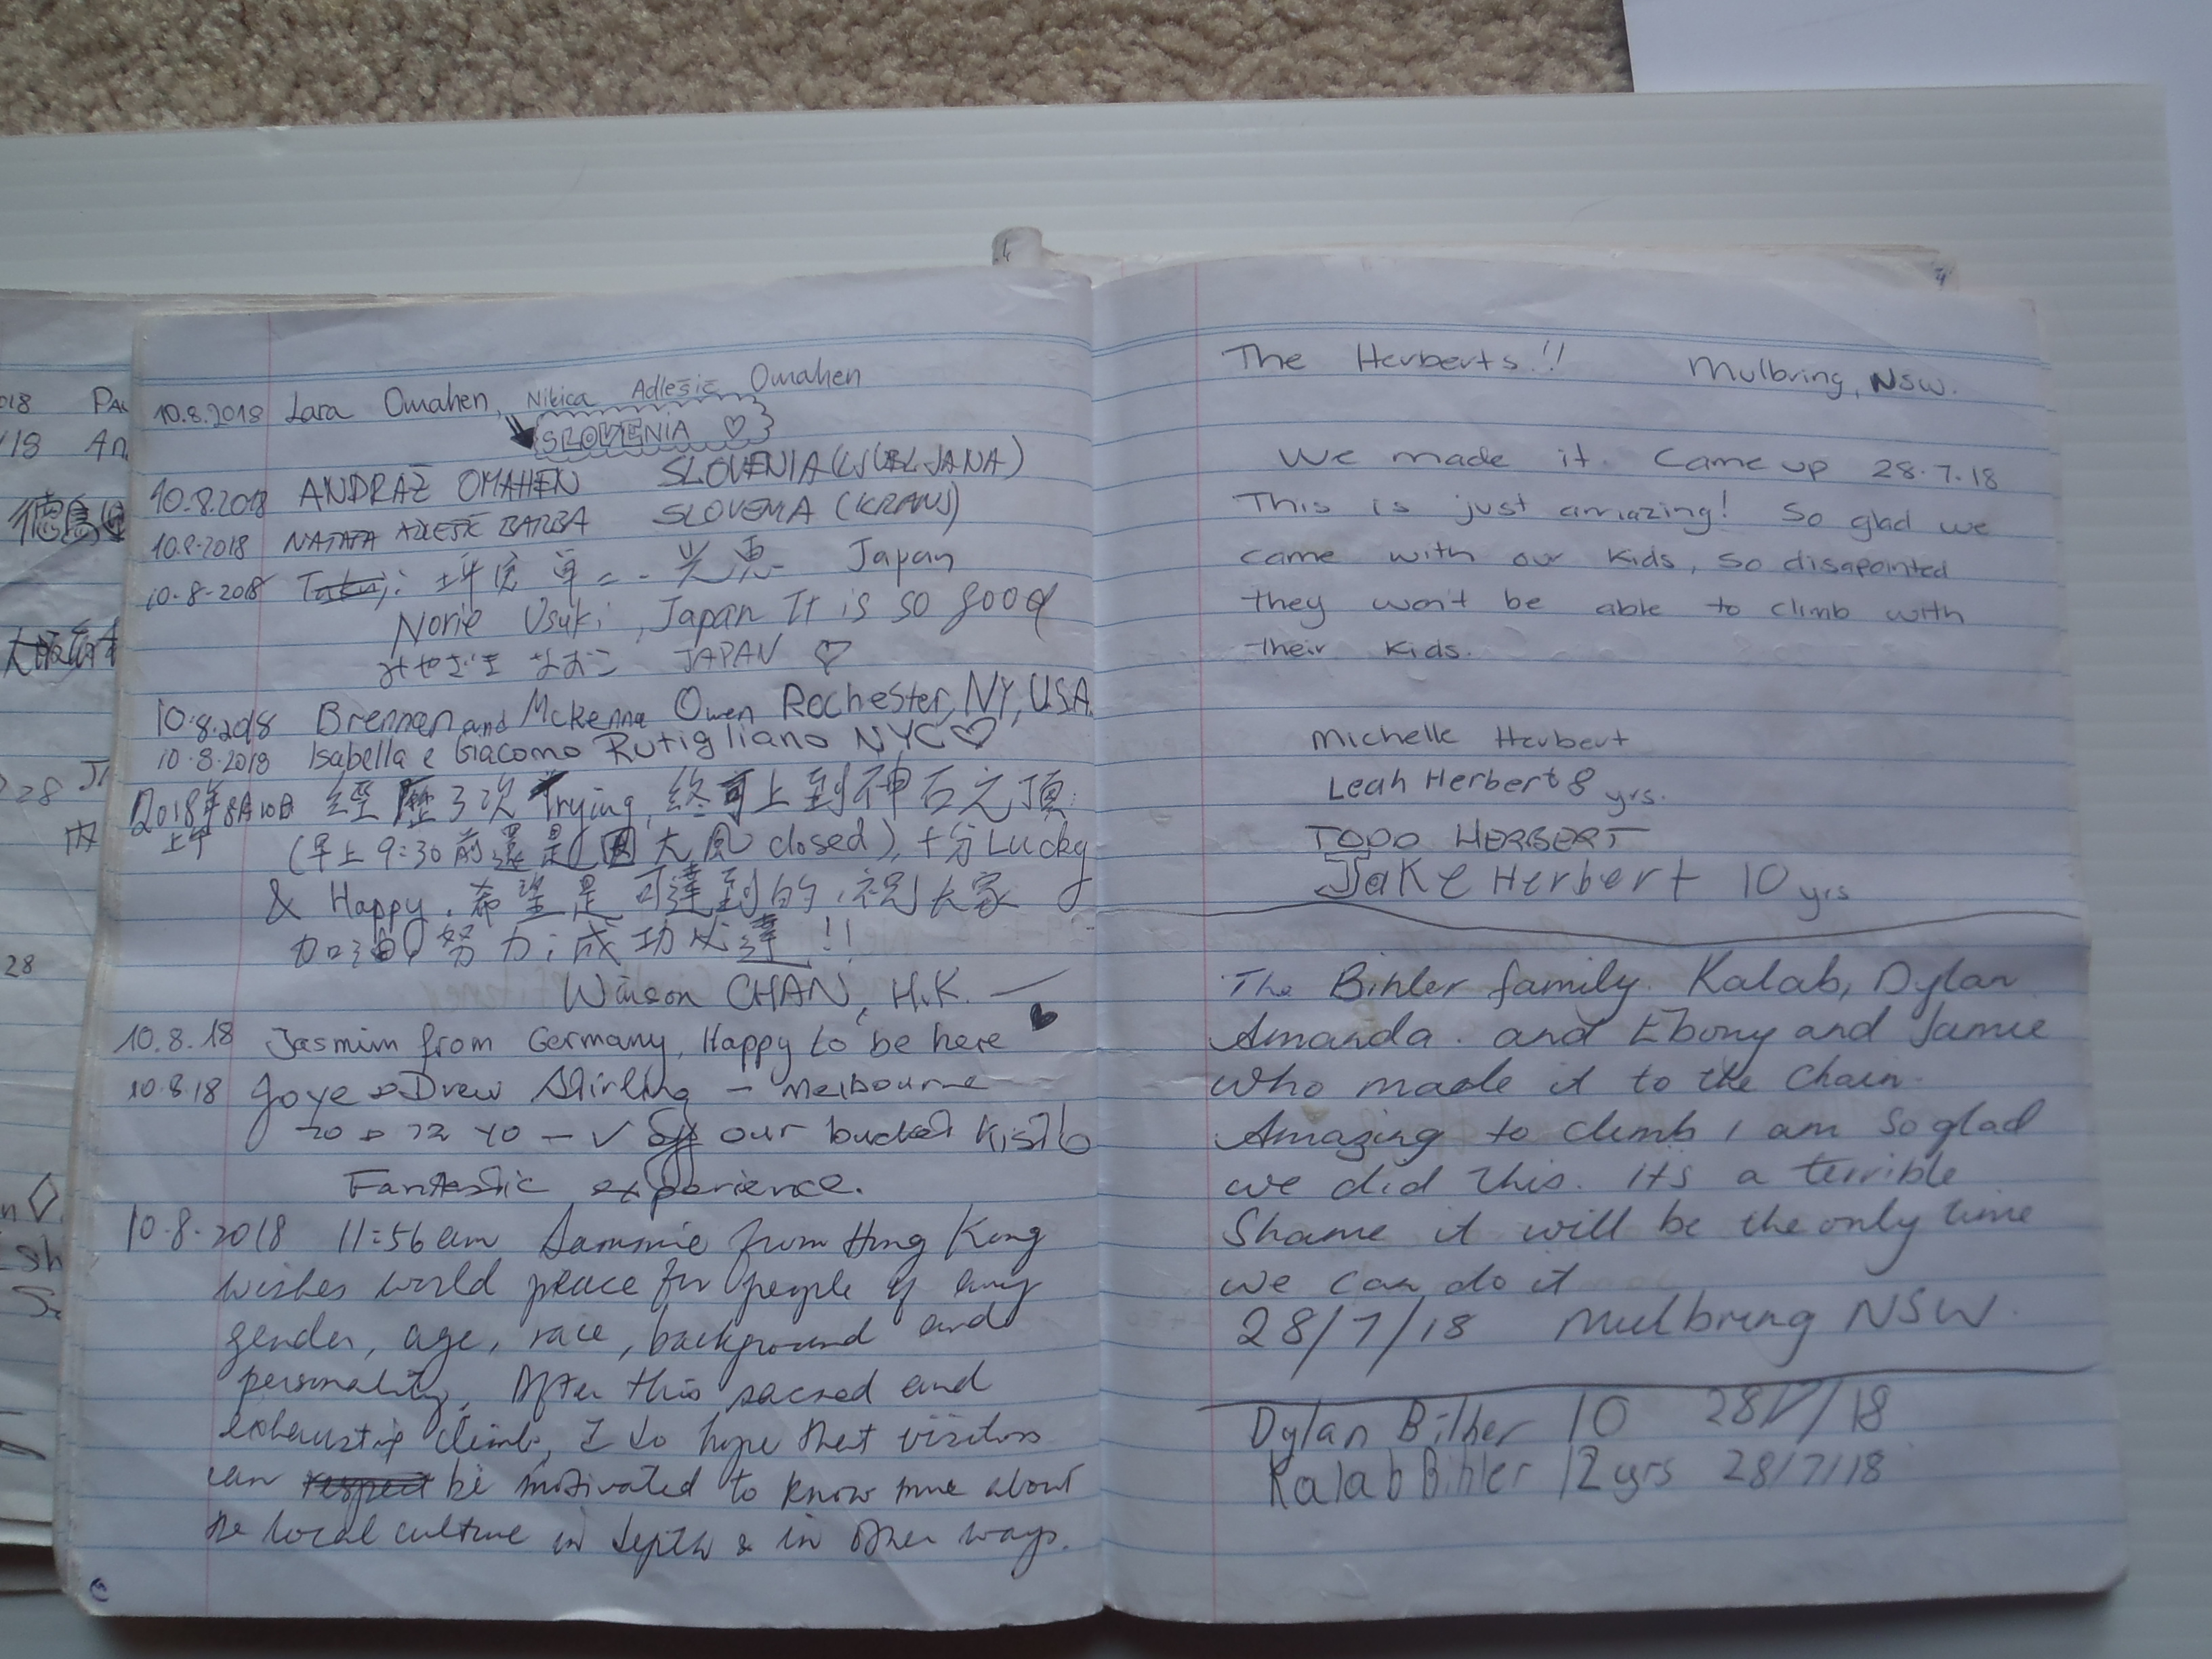 10.8.2018 Lara Omahen, Nikica Adlešič Omahen
SLOVENIA ♡
10.8.2018 ANDRAŽ OMAHEN SLOVENIA (LJUBLJANA)
10.8.2018 BARBA SLOVENIA (KRANJ)
10-8-2018 光恵 Japan
Norie Usuki, Japan It is so good
みせざき なおこ JAPAN ♡
10.8.2018 Brennan and Mckenna Owen Rochester, NY, USA
10.8.2018 Isabella e Giacomo Rutigliano NYC ♡
2018年8月10日 經歷3次 Trying, 終可上到神石之頂
上午 (早上9:30前還是因大風 closed), 十分Lucky
& Happy. 希望是可達到的, 祝大家
加油, 努力; 成功必達!!
Winson CHAN, H.K.
10.8.18 Jasmin from Germany, Happy to be here ♥
10.8.18 Joye & Drew Stirling - Melbourne
70 & 72 YO - ✓ off our bucket list
Fantastic experience.
10.8.2018 11:56am Sammie from Hong Kong
wishes world peace for people of any
gender, age, race, background and
personality. After this sacred and
exhausting climb, I do hope that visitors
can respect be motivated to know more about
the local culture in depth & in other ways.
The Herberts!! Mulbring, NSW.
We made it. Came up 28.7.18
This is just amazing! So glad we
came with our kids, so disapointed
they won't be able to climb with
their kids.
Michelle Herbert
Leah Herbert 8 yrs.
TODD HERBERT
Jake Herbert 10 yrs
The Bihler family. Kalab, Dylan
Amanda. and Ebony and Jamie
who made it to the chain.
Amazing to climb, I am so glad
we did this. its a terrible
Shame it will be the only time
we can do it
28/7/18 Mulbring NSW.
Dylan Bilher 10 28/7/18
Kalab Bihler 12 yrs 28/7/18